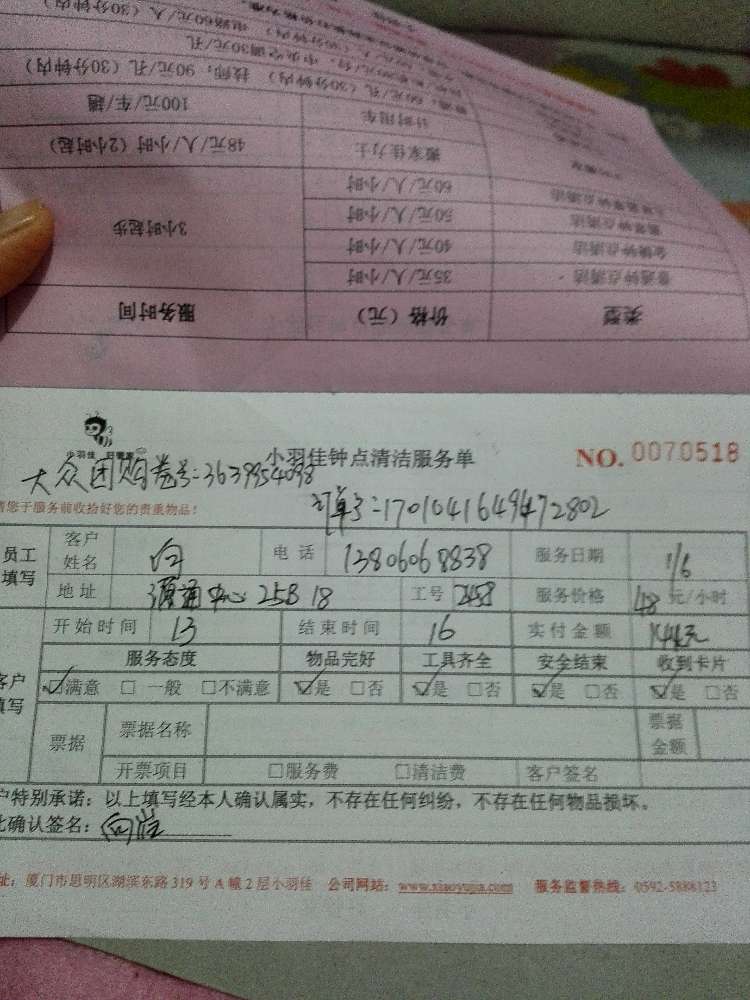 100元/车/趟
计时用车
48元/人/小时（2小时起）
搬家佳力士
60元/人/小时
50元/人/小时
40元/人/小时
35元/人/小时
3小时起步
普通钟点清洁
服务时间
价格（元）
类型
小羽佳钟点清洁服务单
NO. 0070518
大众团购卷号:
订单号:1701041649472802
请您于服务前收拾好您的贵重物品!
员工填写
客户姓名
电话 13806068838
服务日期 1/6
地址
源通中心 25B 18
工号 2458
服务价格 48 元/小时
开始时间 13
结束时间 16
实付金额 144元
服务态度 物品完好 工具齐全 安全结束 收到卡片
☑满意 □一般 □不满意 ☑是 □否 ☑是 □否 ☑是 □否 ☑是 □否
客户填写
票据
票据名称
票据金额
开票项目 □服务费 □清洁费 客户签名
户特别承诺：以上填写经本人确认属实，不存在任何纠纷，不存在任何物品损坏。
此确认签名：
址：厦门市思明区湖滨东路319号A幢2层小羽佳 公司网站：www.xiaoyujia.com 服务监督热线：0592-5888123